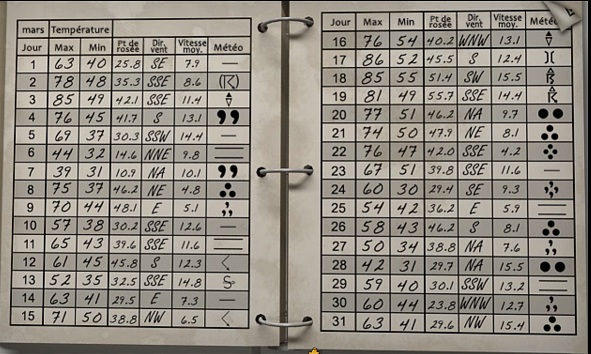 mars Température Pt de rosée Dir. vent Vitesse moy. Météo
Jour Max Min
1 63 40 25.8 SE 7.9
2 78 48 35.3 SSE 8.6
3 85 49 42.1 SSE 11.4
4 76 45 41.7 S 13.1
5 69 37 30.3 SSW 14.4
6 44 32 14.6 NNE 9.3
7 39 31 10.9 NA 10.1
8 75 37 46.2 NE 4.8
9 70 44 48.1 E 5.1
10 57 38 30.2 SSE 12.6
11 65 43 39.6 SSE 11.6
12 61 45 45.8 S 12.3
13 52 35 32.5 SSE 14.8
14 63 41 29.5 E 7.3
15 71 50 38.8 NW 6.5
Jour Max Min Pt de rosée Dir. vent Vitesse moy. Météo
16 76 54 40.2 WNW 13.1
17 86 52 45.5 S 12.4
18 85 55 51.4 SW 15.5
19 81 49 55.7 SSE 14.4
20 77 51 46.2 NA 9.7
21 74 50 47.9 NE 8.1
22 76 47 42.0 SSE 4.2
23 67 51 39.8 SSE 11.6
24 60 30 29.4 SE 9.3
25 54 42 36.2 E 5.9
26 58 43 46.2 S 8.1
27 50 34 38.8 NA 7.6
28 42 31 29.7 NA 15.5
29 59 40 30.1 SSW 13.2
30 60 44 23.8 WNW 12.7
31 63 41 29.6 NW 15.4